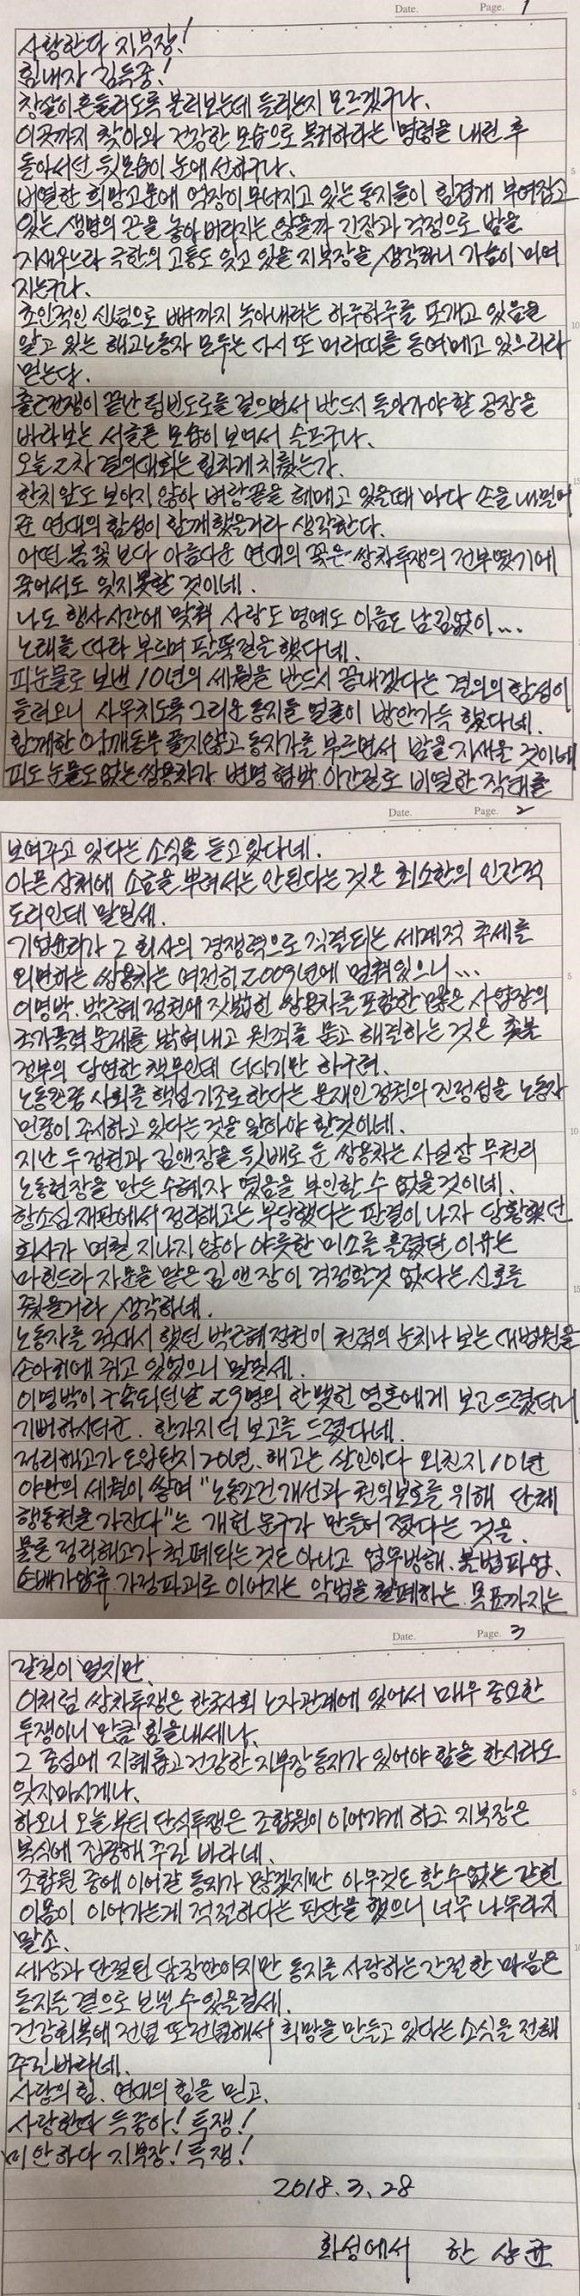 Date. Page. 1
사랑한다 지부장!
힘내자 김득중!
창살이 흔들리도록 불러보는데 들리는지 모르겠구나.
이곳까지 찾아와 건강한 모습으로 복귀하라는 명령을 내린 후
돌아서던 뒷모습이 눈에 선하구나.
비열한 희망고문에 억장이 무너지고 있는 동지들이 힘겹게 부여잡고
있는 생명의 끈을 놓아 버리지는 않을까 긴장과 걱정으로 밤을
지새우느라 극한의 고통도 잊고 있을 지부장을 생각하니 가슴이 미어
지는구나.
초인적인 신념으로 뼈까지 녹아내리는 하루하루를 쪼개고 있음을
알고 있는 해고노동자 모두는 다시 또 머리띠를 동여메고 있으리라
믿는다.
출근선전이 끝난 텅빈도로를 걸으면서 반드시 돌아가야 할 공장을
바라보는 서글픈 모습이 보여서 슬프구나.
오늘 2차 결의대회는 힘차게 치뤘는가.
한치 앞도 보이지 않아 벼랑끝을 헤메고 있을때 마다 손을 내밀어
준 연대의 함성이 함께 했을거라 생각한다.
어떤 봄꽃 보다 아름다운 연대의 꽃은 쌍차투쟁의 전부였기에
죽어서도 잊지못할 것이네.
나도 행사시간에 맞춰 사랑도 명예도 이름도 남김없이...
노래를 따라 부르며 팔뚝질을 했다네.
피눈물로 보낸 10년의 세월을 반드시 끝내겠다는 결의의 함성이
들려오니 사무치도록 그리운 동지들 얼굴이 방안가득 했다네.
함께한 어깨동무 풀지않고 동지가를 부르면서 밤을 지새울 것이네
피도 눈물도 없는 쌍용차가 변명 협박 이간질로 비열한 작태를
Date. Page. 2
보여주고 있다는 소식을 듣고 있다네.
아픈 상처에 소금을 뿌려서는 안된다는 것은 최소한의 인간적
도리인데 말일세.
기업윤리가 그 회사의 경쟁력으로 직결되는 세계적 추세를
외면하는 쌍용차는 여전히 2009년에 멈춰있으니...
이명박. 박근혜 정권에 짓밟힌 쌍용차를 포함한 많은 사업장의
국가폭력 문제를 밝혀내고 원죄를 묻고 해결하는 것은 촛불
정부의 당연한 책무인데 더디기만 하구려.
노동존중 사회를 핵심기조로 한다는 문재인 정권의 진정성을 노동자
민중이 주시하고 있다는 것을 알아야 할것이네.
지난 두정권과 김앤장을 뒷배로 둔 쌍용차는 사실상 무권리
노동현장을 만든 수혜자 였음을 부인할 수 없을것이네.
항소심 재판에서 정리해고는 부당했다는 판결이 나자 당황했던
회사가 며칠 지나지 않아 야릇한 미소를 흘렸던 이유는
마힌드라 자문을 맡은 김앤장이 걱정할것 없다는 신호를
줬을거라 생각하네.
노동자를 적대시 했던 박근혜정권이 권력의 눈치나 보는 대법원을
손아귀에 쥐고 있었으니 말일세.
이명박이 구속되던날 29명의 한맺힌 영혼에게 보고드렸더니
기뻐하시더군. 한가지 더 보고를 드렸다네.
정리해고가 도입된지 20년. 해고는 살인이다 외친지 10년
야만의 세월이 쌓여 "노동조건개선과 권익보호를 위해 단체
행동권을 가진다"는 개헌 문구가 만들어 졌다는 것을.
물론 정리해고가 철폐되는 것도 아니고 업무방해, 불법파업,
손배가압류. 가정파괴로 이어지는 악법을 철폐하는 목표까지는
Date. Page. 3
갈길이 멀지만,
이처럼 쌍차투쟁은 한국사회 노자관계에 있어서 매우 중요한
투쟁이니 만큼 힘을내세나.
그 중심에 지혜롭고 건강한 지부장 동지가 있어야 함을 한시라도
잊지마시게나.
하오니 오늘 부터 단식투쟁은 조합원이 이어가게 하고 지부장은
복식에 집중해 주길 바라네.
조합원 중에 이어갈 동지가 많겠지만 아무것도 할수없는 갇힌
이몸이 이어가는게 적절하다는 판단을 했으니 너무 나무라지
말소.
세상과 단절된 담장안이지만 동지를 사랑하는 간절한 마음은
동지들 곁으로 보낼 수 있을걸세.
건강회복에 전념 또 전념해서 희망을 만들고 있다는 소식을 전해
주길바라네.
사람의 힘. 연대의 힘을 믿고.
사랑한다 득중아! 투쟁!
미안하다 지부장! 투쟁!
2018. 3. 28
화성에서 한상균